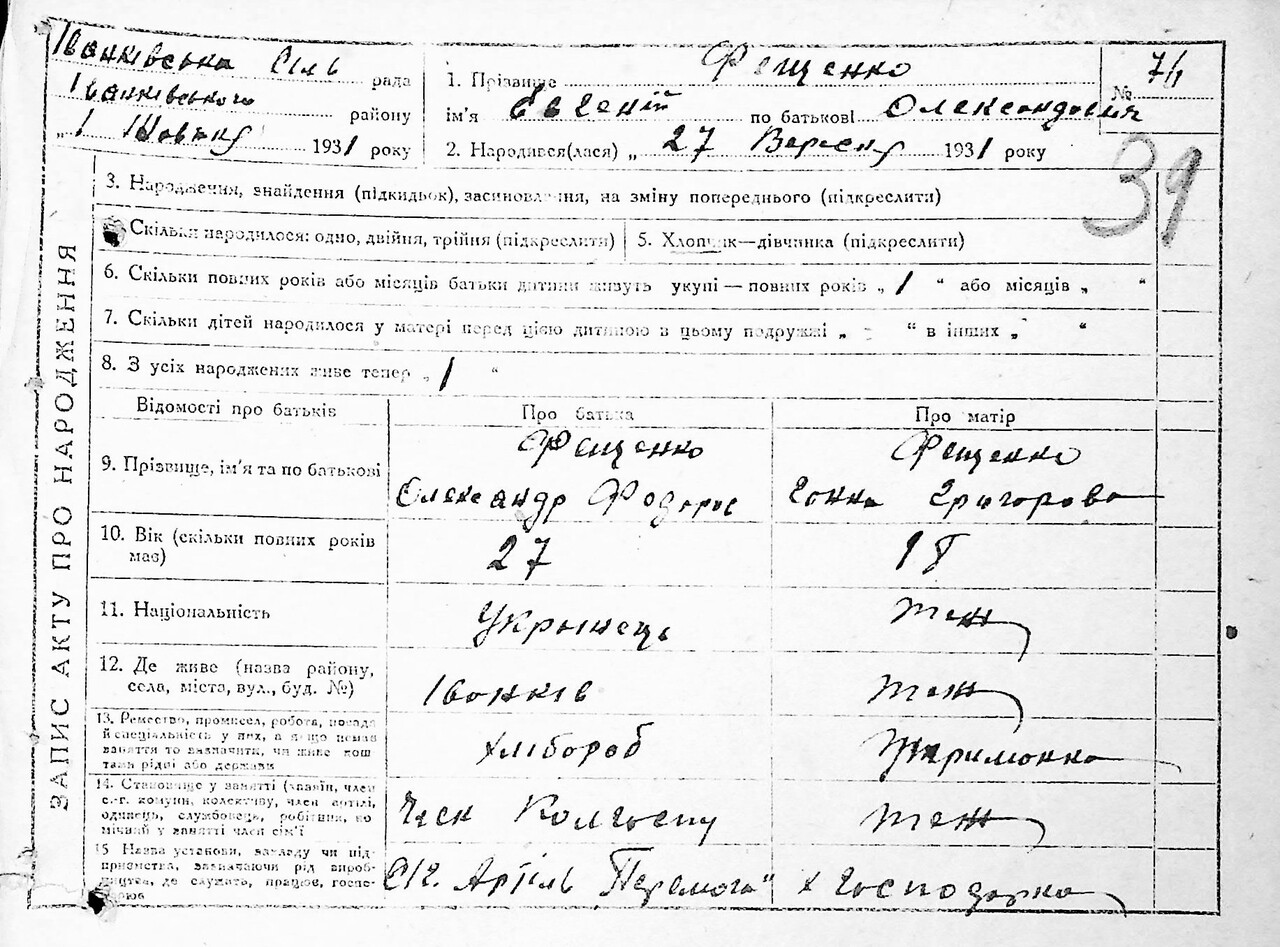 Іванківська Сіль рада
Іванківського району
„ 1 Жовтня 1931 року
1. Прізвище Фещенко
ім'я Євгеній по батькові Олександович
2. Народився(лася) „ 27 Вересня 1931 року
№ 74
39
ЗАПИС АКТУ ПРО НАРОДЖЕННЯ
3. Народження, знайдення (підкидьок), засиновлення, на зміну попереднього (підкреслити)
Скільки народилося: одно, двійня, трійня (підкреслити)
5. Хлопчик—дівчинка (підкреслити)
6. Скільки повних років або місяців батьки дитини живуть укупі — повних років „ 1 “ або місяців „ “
7. Скільки дітей народилося у матері перед цією дитиною в цьому подружжі „ “ в інших „ “
8. З усіх народжених живе тепер „ 1 “
Відомості про батьків Про батька Про матір
9. Прізвище, ім'я та по батькові
Фещенко
Олександр Федоров
Фещенко
Ганна Григорова
10. Вік (скільки повних років має) 27 18
11. Національність Украінець теж
12. Де живе (назва району,
села, міста, вул., буд. №) Іванків теж
13. Ремество, промисел, робота, посада
й спеціальність у них, а якщо немає
заняття то зазначити, чи живе кош
тами рідні або держави
хлібороб
14. Становище у занятті (хазяїн, член
с.-г. комуни, колективу, член артілі,
одинець, службовець, робітник, по
мічний у занятті член сім'ї
Член Колгоспу теж
15 Назва установи, закладу чи під-
приємства, зазначаючи рід вироб-
ництва, де служать, працює, госпо-
дарює
С/г. Артіль „Перемога“ Господарка